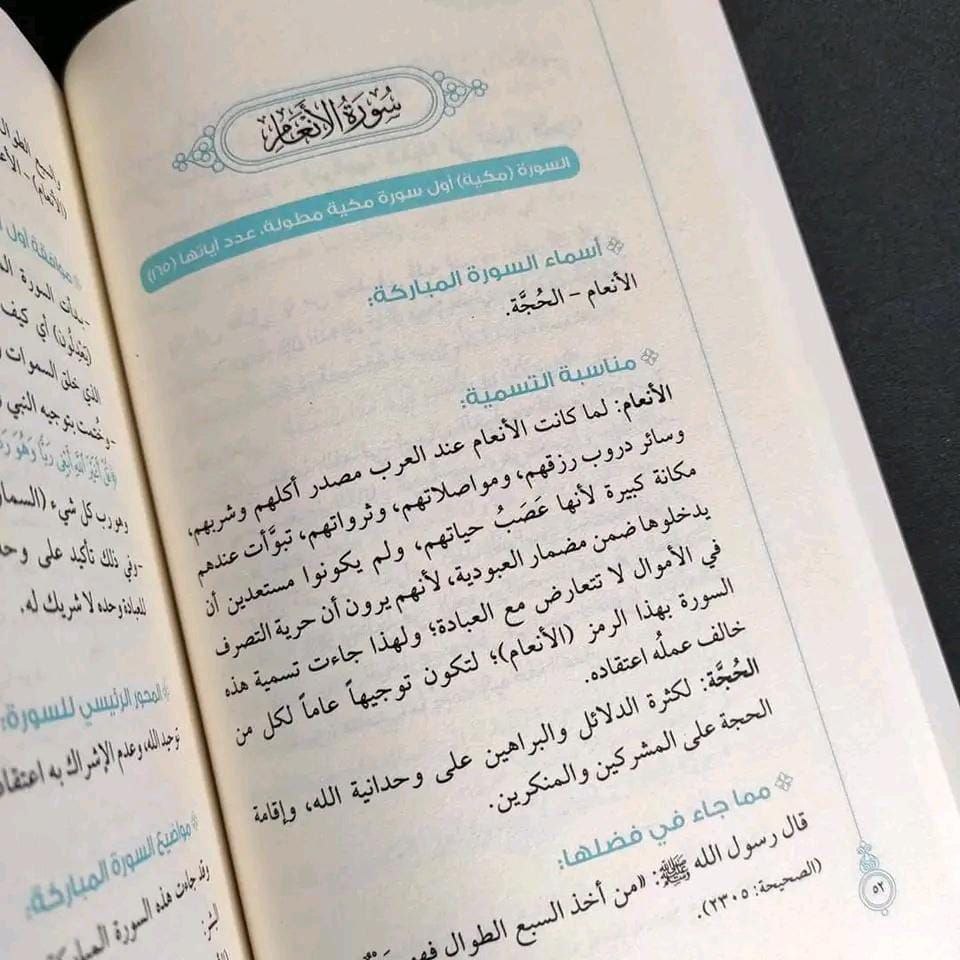 سُورَةُ الأَنْعَامِ
السورة (مكية) أول سورة مكية مطولة، عدد آياتها (١٦٥)
أسماء السورة المباركة:
الأنعام – الحُجَّة.
مناسبة التسمية:
الأنعام: لما كانت الأنعام عند العرب مصدر أكلهم وشربهم،
وسائر دروب رزقهم، ومواصلاتهم، وثرواتهم، تبوَّأت عندهم
مكانة كبيرة لأنها عَصَبُ حياتهم، ولم يكونوا مستعدين أن
يدخلوها ضمن مضمار العبودية، لأنهم يرون أن حرية التصرف
في الأموال لا تتعارض مع العبادة؛ ولهذا جاءت تسمية هذه
السورة بهذا الرمز (الأنعام)؛ لتكون توجيهاً عاماً لكل من
خالف عملُه اعتقاده.
الحُجَّة: لكثرة الدلائل والبراهين على وحدانية الله، وإقامة
الحجة على المشركين والمنكرين.
مما جاء في فضلها:
قال رسول الله ﷺ: «من أخذ السبع الطوال فهو
(الصحيحة: ٢٣٠٥).
٥٢
السبع الطوال
(الأنعام) – الأ
موافقة أول ا
-بدأت السورة
(يَعْدِلُونَ) أي كيف
الذي خلق السموات
-وخُتمت بتوجيه النبي
أَغَيْرَ اللَّهِ أَبْغِي رَبًّا وَهُوَ رَبُّ
وهو رب كل شيء (السما
-وفي ذلك تأكيد على وحد
للعبادة وحده لا شريك له.
المحور الرئيسي للسورة:
توحيد الله، وعدم الإشراك به اعتقاد
مواضيع السورة المباركة:
وقد جاءت هذه السورة المباركة